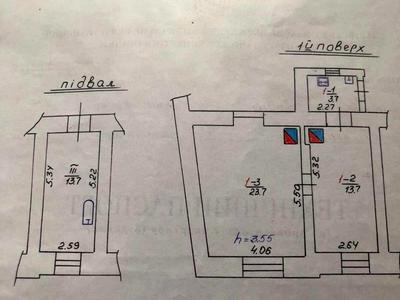 1й поверх
підвал
1-1
3.7
2.27
III
13.7
5.34
5.22
2.59
1-3
23.7
5.50
5.32
1-2
13.7
h=3.55
4.06
2.64